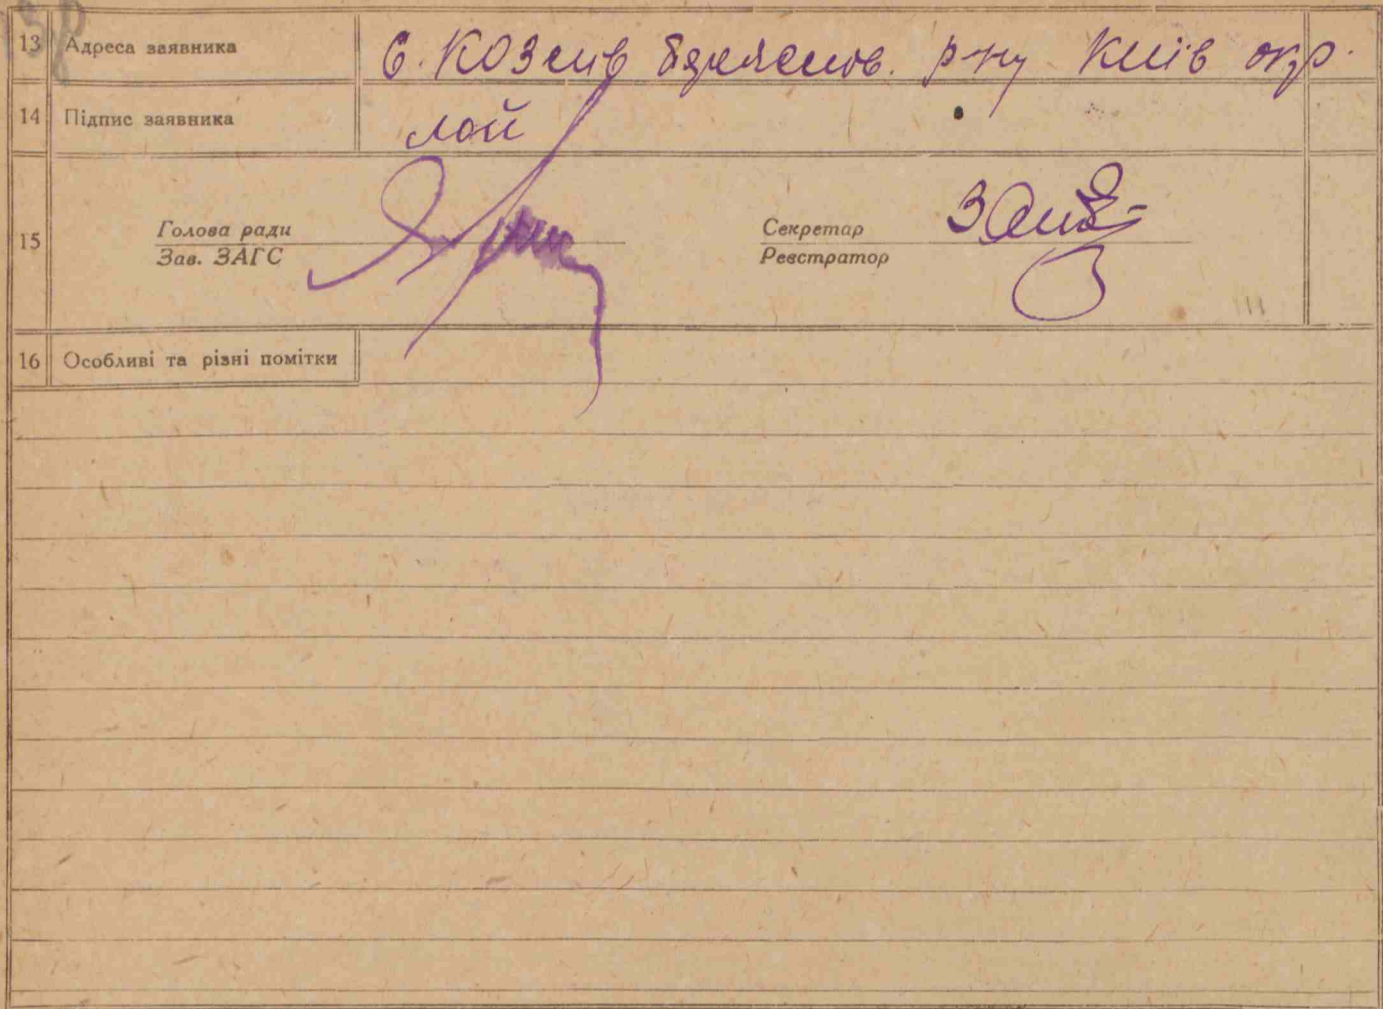 13 Адреса заявника с. Козлів р-ну Київ окр.
14 Підпис заявника Лой
15 Голова ради Секретар
Зав. ЗАГС Реєстратор
16 Особливі та різні помітки